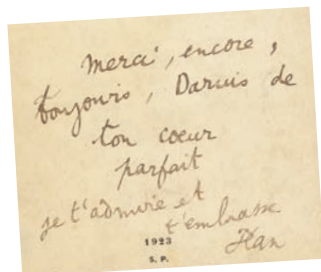 Merci, encore,
toujours, Darius de
ton coeur
parfait
je t'admire et
t'embrasse
1923
S. P.